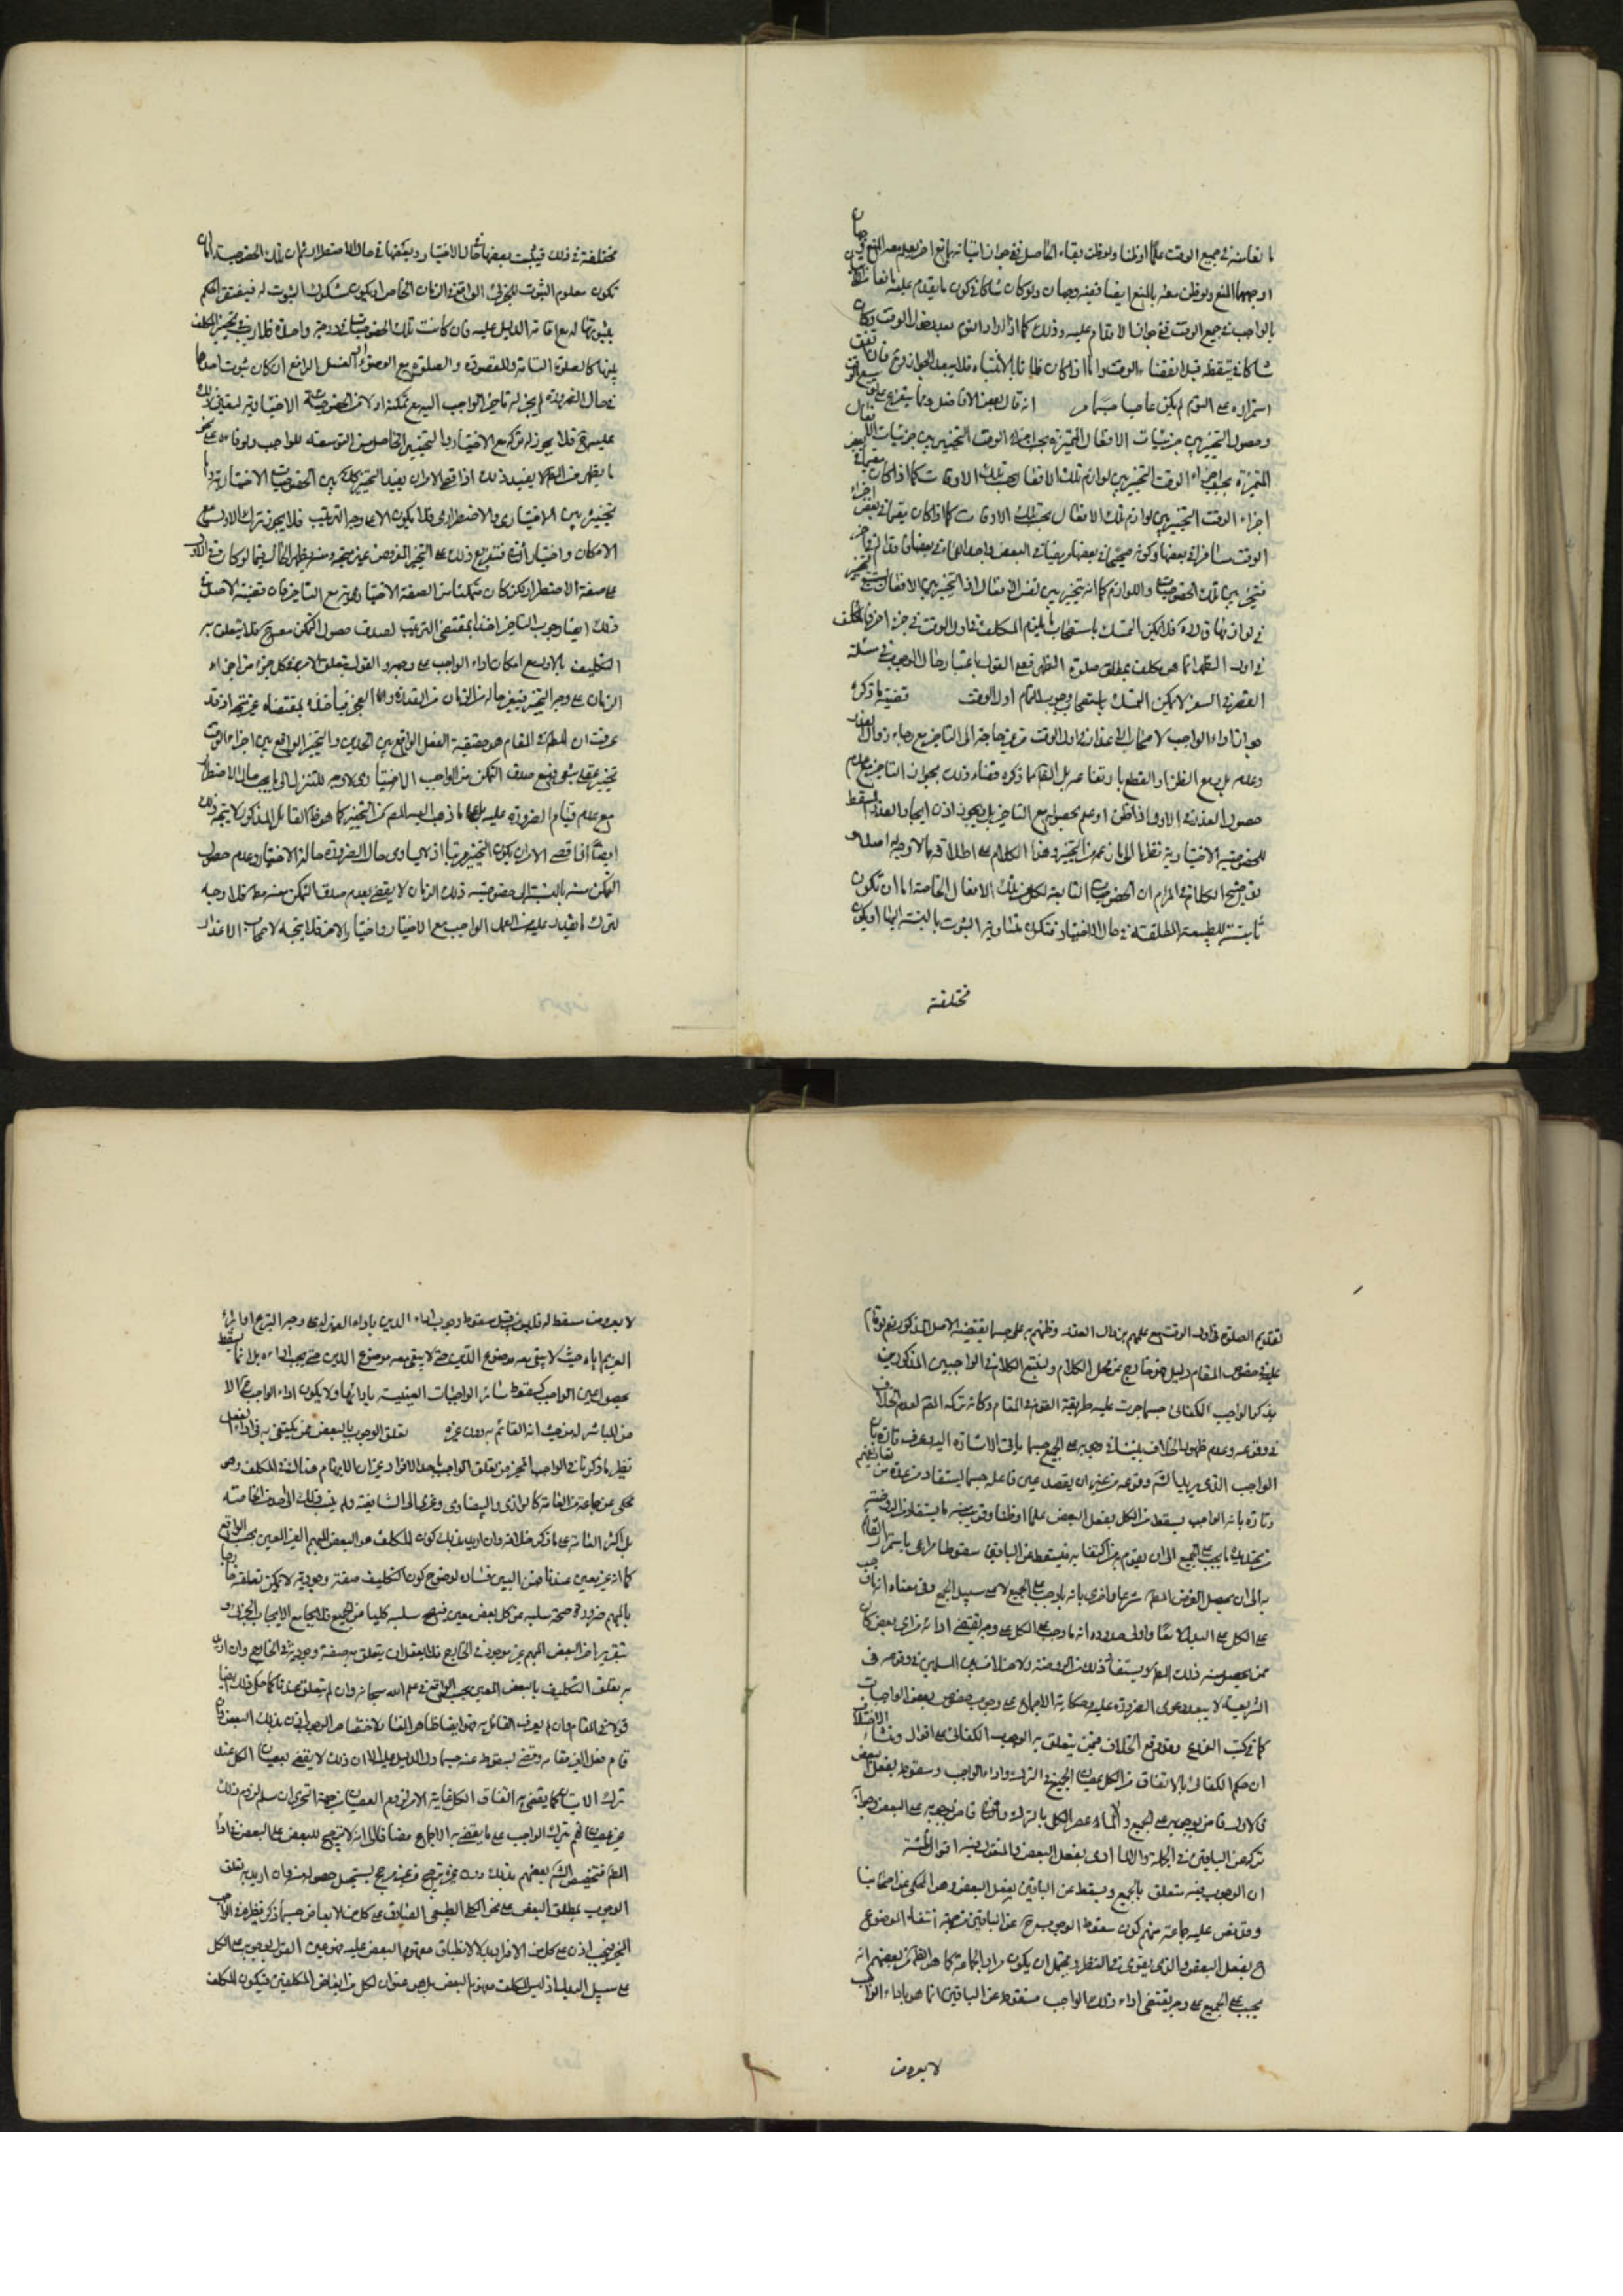 ما نعا منه في جميع الوقت علما او ظنا ولو ظن بقاء الحاصل ففي جواز اتيانه بما نع اخر بعد المنع وجهان
اوجههما المنع ولو ظن معه بالمنع ايضا ففيه وجهان ولو كان شاكا في كون ما يقدم عليه مانعا
بالواجب في جميع الوقت ففي جواز الاقدام عليه وذلك كما اذا اراد النوم بعد دخول الوقت وكان
شاكا في تيقظه قبل انقضاء الوقت واما اذا كان ظانا بالانتباه فلا يبعد الجواز وح فان اتفق
استمراره على النوم لم يكن عاصيا انه قال بعض الافاضل ومما يتفرع على
وحصول التخيير بين جزئيات الافعال المتميزة بحسب اجزاء الوقت التخيير بين جزئيات
المتميزة بحسب اجزاء الوقت التخيير بين لوازم تلك الافعال بحسب تلك الاوقات كما اذا كان
اجزاء الوقت التخيير بين لوازم تلك الافعال بحسب تلك الاوقات كما اذا كان مقيما في بعض
الوقت مسافرا في بعضها وكونه صحيحا في بعضها ومريضا في البعض
فتخير بين تلك الخصوصيات واللوازم كما انه تخيير بين نفس الافعال اذ التخيير بين الافعال
في لوازمها قال فلا يمكن التمسك باستصحاب ما يلزم المكلف في اول الوقت في جزء اخر فالمكلف
في اول الظهر انما هو مكلف بمطلق صلوة الظهر فعلى القول باعتبار حال الوجوب في مسئلة
القصر في السفر لا يمكن التمسك باستصحاب وجوب التمام اول الوقت قضية ما ذكره
جواز اداء الواجب لاصحاب الاعذار في اول الوقت من غير حاجة الى التاخير مع رجاء زوال العذر
وعدمه بل ومع الظن او القطع بارتفاعه بل القائم ما ذكره قضاء ذلك بجواز التاخير مع علم
حصول العذر في الاول اذا ظن او علم بحصوله مع التاخير بل ويجوز اذن ايجاد العذر المسقط
للخصوصية الاختيارية نظرا الى ما زعمه من التخيير وهذا الكلام على اطلاقه مما لا وجه له اصلا و
توضيح الكلام في المرام ان الخصوصيات التابعة لكل من تلك الافعال الخاصة اما ان تكون
ثابتة للطبيعة المطلقة في حال الاختيار فتكون متساوية الثبوت بالنسبة اليها او يكون
مختلفة
مختلفة في ذلك فيثبت بعضها في حال الاختيار وبعضها في حال الاضطرار ثم ان تلك الخصوصية اما ان
تكون معلوم الثبوت للجزئي الواقع في الزمان الخاص او يكون مشكوك الثبوت له فيفتقر الحكم
بثبوتها له مع اقامة الدليل عليه فان كانت تلك الخصوصيات في درجة واحدة فلا ريب في تخيير المكلف
بينها كالصلوة التامة والمقصورة والصلوة مع الوضوء او الغسل الرافع ان كان ثبوت احدها
في حال الضرورة لم يجز له تاخير الواجب اليه مع تمكنه اولا من الخصوصية الاختيارية لتعين ذلك
عليه ح فلا يجوز له تركه مع الاختيار والتخيير الحاصل من التوسعة للواجب ولو قام على نحو
ما يظهر من القم لا يفيد ذلك اذ اقصى الامر ان يفيد التخيير كل بين الخصوصيات الاختيارية واما
تخييره بين الاختياري والاضطراري فلا يكون الا على وجه الترتيب فلا يجوز ترك الاول مع
الامكان واختيار الثاني فتفريع ذلك على التخيير المفروض غير متجه ومنه يظهر الحال فيما لو كان في الاول
على صفة الاضطرار لكن كان متمكنا من الصفة الاختيارية مع التاخير فان قضية الاصل في
ذلك ايضا وجوب التاخير اخذا بمقتضى الترتيب لصدق حصول التمكن معه ح فلا يتعلق به
التكليف بالاول مع امكان اداء الواجب على وجهه والقول بتعلق الامر بفعل كل جزء من اجزاء
الزمان على وجه التخيير فيعتبر حاله من الزمان من القدرة والعجز فياخذ بمقتضاه غير متجه اذ قد
عرفت ان المطلوب في المقام هو حقيقة الفعل الواقع بين الحدين والتخيير الواقع بين اجزاء الوقت
تخيير عقلي تبعي فمع صدق التمكن من الواجب الاختياري لا وجه للتنزل الى ما يجب حال الاضطرار
مع عدم قيام الضرورة عليه بل على ما ذهب اليه القم من التخيير كما هو ظاهر القائل المذكور لا يتجه ذلك
ايضا اذ اقصى الامر ان يكون التخيير مرتبا اذ لا يساوي حال الضرورة حالة الاختيار وعدم حصول
التمكن منه بالنسبة الى خصوصية ذلك الزمان لا يقضي بعدم صدق التمكن منه مط فلا وجه
لترك ما يقدر عليه من العمل الواجب مع الاختيار واختيار الاخر فلا يتجه لاصحاب الاعذار
تقديم الصلوة في اول الوقت مع علمهم بزوال العذر وظنهم به على حسبما يقتضيه الاصل المذكور نعم لو قام
عليه في خصوص المقام دليل فهو خارج عن محل الكلام ولنتبع الكلام في الواجبين المذكورين
بذكر الواجب الكفائي حسبما جرت عليه طريقة القوم في المقام وكانه تركه القم لعدم الخلاف
في وقوعه وعدم ظهور الخلاف بيننا في وجوبه على الجميع حسبما ياتي الاشارة اليه وعرف تارة بانه
الواجب الذي يريد الشم وقوعه من غير ان يقصد عين فاعله حسبما يستفاد من عدة من تعاريفهم
وتارة بانه الواجب يسقط من الكل بفعل البعض علما او ظنا وقريب منه ما يستفاد من الروضة
من تحديده بما يجب على الجميع الى ان يقوم به من اكتفى به فيسقط عن الباقين سقوطا مراعى باستمرار القائم
به الى ان يحصل الغرض المط شرعا واخرى بانه ما وجب على الجميع لا على سبيل الجمع وفي معناه انه ما وجب
على الكل على البدل لا معا واولى حدوده انه ما وجب على الكل على وجه يقتضي ادائه من اي بعض كان
ممن يحصل منه ذلك الفعل ويستفاد ذلك من الروضة ولا خلاف بين المسلمين في وقوعه في
الشريعة لا يبعد دعوى الضرورة عليه وحكاية الاجماع على وجوب خصوص بعض الواجبات
كما في كتب الفروع وقد وقع الخلاف فيمن يتعلق به الوجوب الكفائي على اقوال ومنشأ الاختلاف
ان حكم الكفائي بالاتفاق من الكل عصيان الجميع في الترك واداء الواجب وسقوطه بفعل البعض
فالاول قاض بوجوبه على الجميع والا لما عصى الكل بالترك والثاني قاض بوجوبه على البعض والا لما جاز
تركه من الباقين في الجملة والا لما ادى بفعل البعض والمنقول فيه اقوال ثلثة
ان الوجوب فيه متعلق بالجميع ويسقط عن الباقين بفعل البعض وهو المحكي عن اصحابنا
وقد نص عليه جماعة منهم كون سقوط الوجوب ح عن الباقين من جهة انتفاء الموضوع
ح بفعل البعض والذي يقوى في النظر ويحتمل ان يكون مراد الجماعة كما هو الظ من بعضهم انه
يجب على الجميع على وجه يقتضي اداء ذلك الواجب فسقوطه عن الباقين انما هو باداء الواجب
لا بعروض
لا بعروض مسقط له فليس من قبيل سقوط وجوب اداء الدين باداء الغير له على وجه التبرع او ابراء
الغريم اياه حيث لا يبقى معه موضوع الدين حتى لا يبقى معه موضوع الدين حتى يجب اداءه بل انما يسقط
بحصول عين الواجب كسقوط سائر الواجبات العينية بادائها ولا يكون اداء الواجب ح الا
من المباشر له من حيث انه القائم به دون غيره تعلق الوجوب بالبعض ممن يكتفى به في اداء الفعل
نظير ما ذكر ثاني الواجب المخير من تعلق الواجب باحد الافراد غير ان الابهام هنالك في المكلف وهو
محكي عن جماعة من العامة كالرازي والبيضاوي وعزى الى الشافعية ولم ينسب ذلك الى احد من الخاصة
بل اكثر العامة على ما ذكر خلافه فان اريد بذلك كون المكلف هو البعض المبهم الغير المعين بحسب الواقع
كما انه غير معين عندنا فمن البين فساده لوضوح كون التكليف صفة وجودية لا يمكن تعلقه خارجا
بالمبهم ضرورة صحة سلبه عن كل بعض معين فيصح سلبه كليا من الجميع فلا يجامع الايجاب الجزئي و
بتقرير اخر البعض المبهم غير موجود في الخارج فلا يعقل ان يتعلق به صفة وجودية في الخارج وان اريد
به تعلق التكليف بالبعض المعين بحسب الواقع في علم الله سبحانه وان لم يتعلق عندنا كما حكى ذلك ايضا
قولا في المقام وان لم يعرف القائل به فهو ايضا ظاهر الفساد لاختصاص الوجوب اذن بذلك البعض وان
قام فعل الغير مقامه وقضى بسقوطه عنه حسبما دل الدليل عليه الا ان ذلك لا يقضي بعصيان الكل عند
ترك الاتيان كما يقضي به اتفاق الكل غاية الامر لزوم العصيان من جهة التجري ان سلم لزوم ذلك
غير عصيانهم بترك الواجب على ما يقضي به الاجماع مضافا الى انه لا ترجيح للبعض على البعض في اداء
الفعل فتخصيص الشم بعضهم بذلك دون غيره ترجيح من غير مرجح يستحيل حصوله منه وان اريد به تعلق
الوجوب بمطلق البعض على نحو الكلي الطبيعي الصادق على كل من الابعاض حسبما ذكر نظيره في الواجب
المخير فيجب اذن على كل من الافراد بدلا لانطباق مفهوم البعض عليه فهو عين القول بوجوبه على الكل
على سبيل البدل اذ ليس المكلف مفهوم البعض بل هو عنوان لكل من ابعاض المكلفين فيكون المكلف